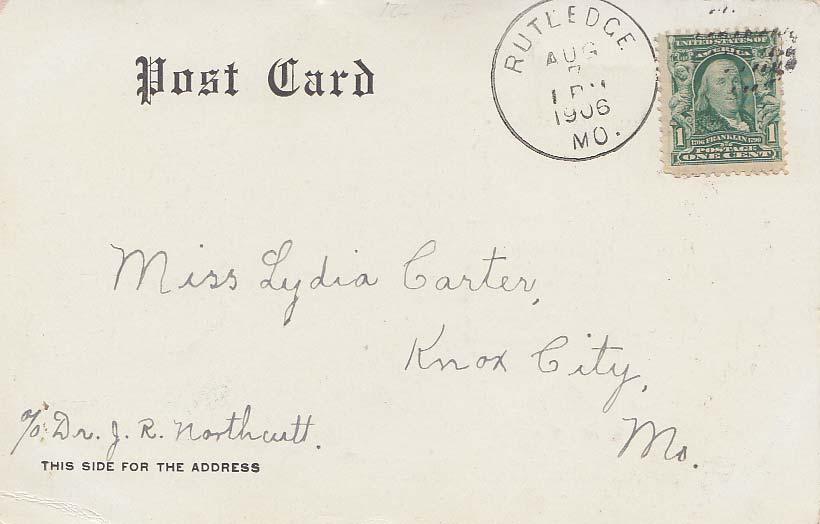 Post Card
RUTLEDGE
AUG
7
1 PM
1906
MO.
UNITED STATES OF
AMERICA
1 1
1706 FRANKLIN 1790
POSTAGE
ONE CENT
Miss Lydia Carter,
Knox City,
Mo.
c/o Dr. J. R. Northcutt.
THIS SIDE FOR THE ADDRESS